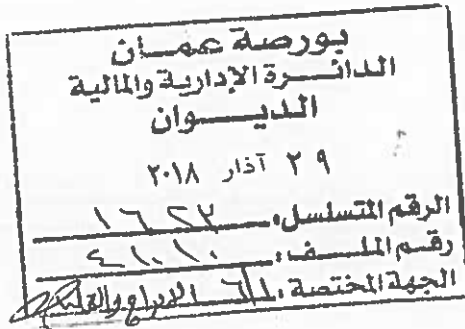 بورصة عمان
الدائرة الإدارية والمالية
الديوان
٢٩ آذار ٢٠١٨
الرقم المتسلسل: ١٦٢٢
رقم الملف: ٤١٠١٠
الجهة المختصة: الإدراج والعمليات